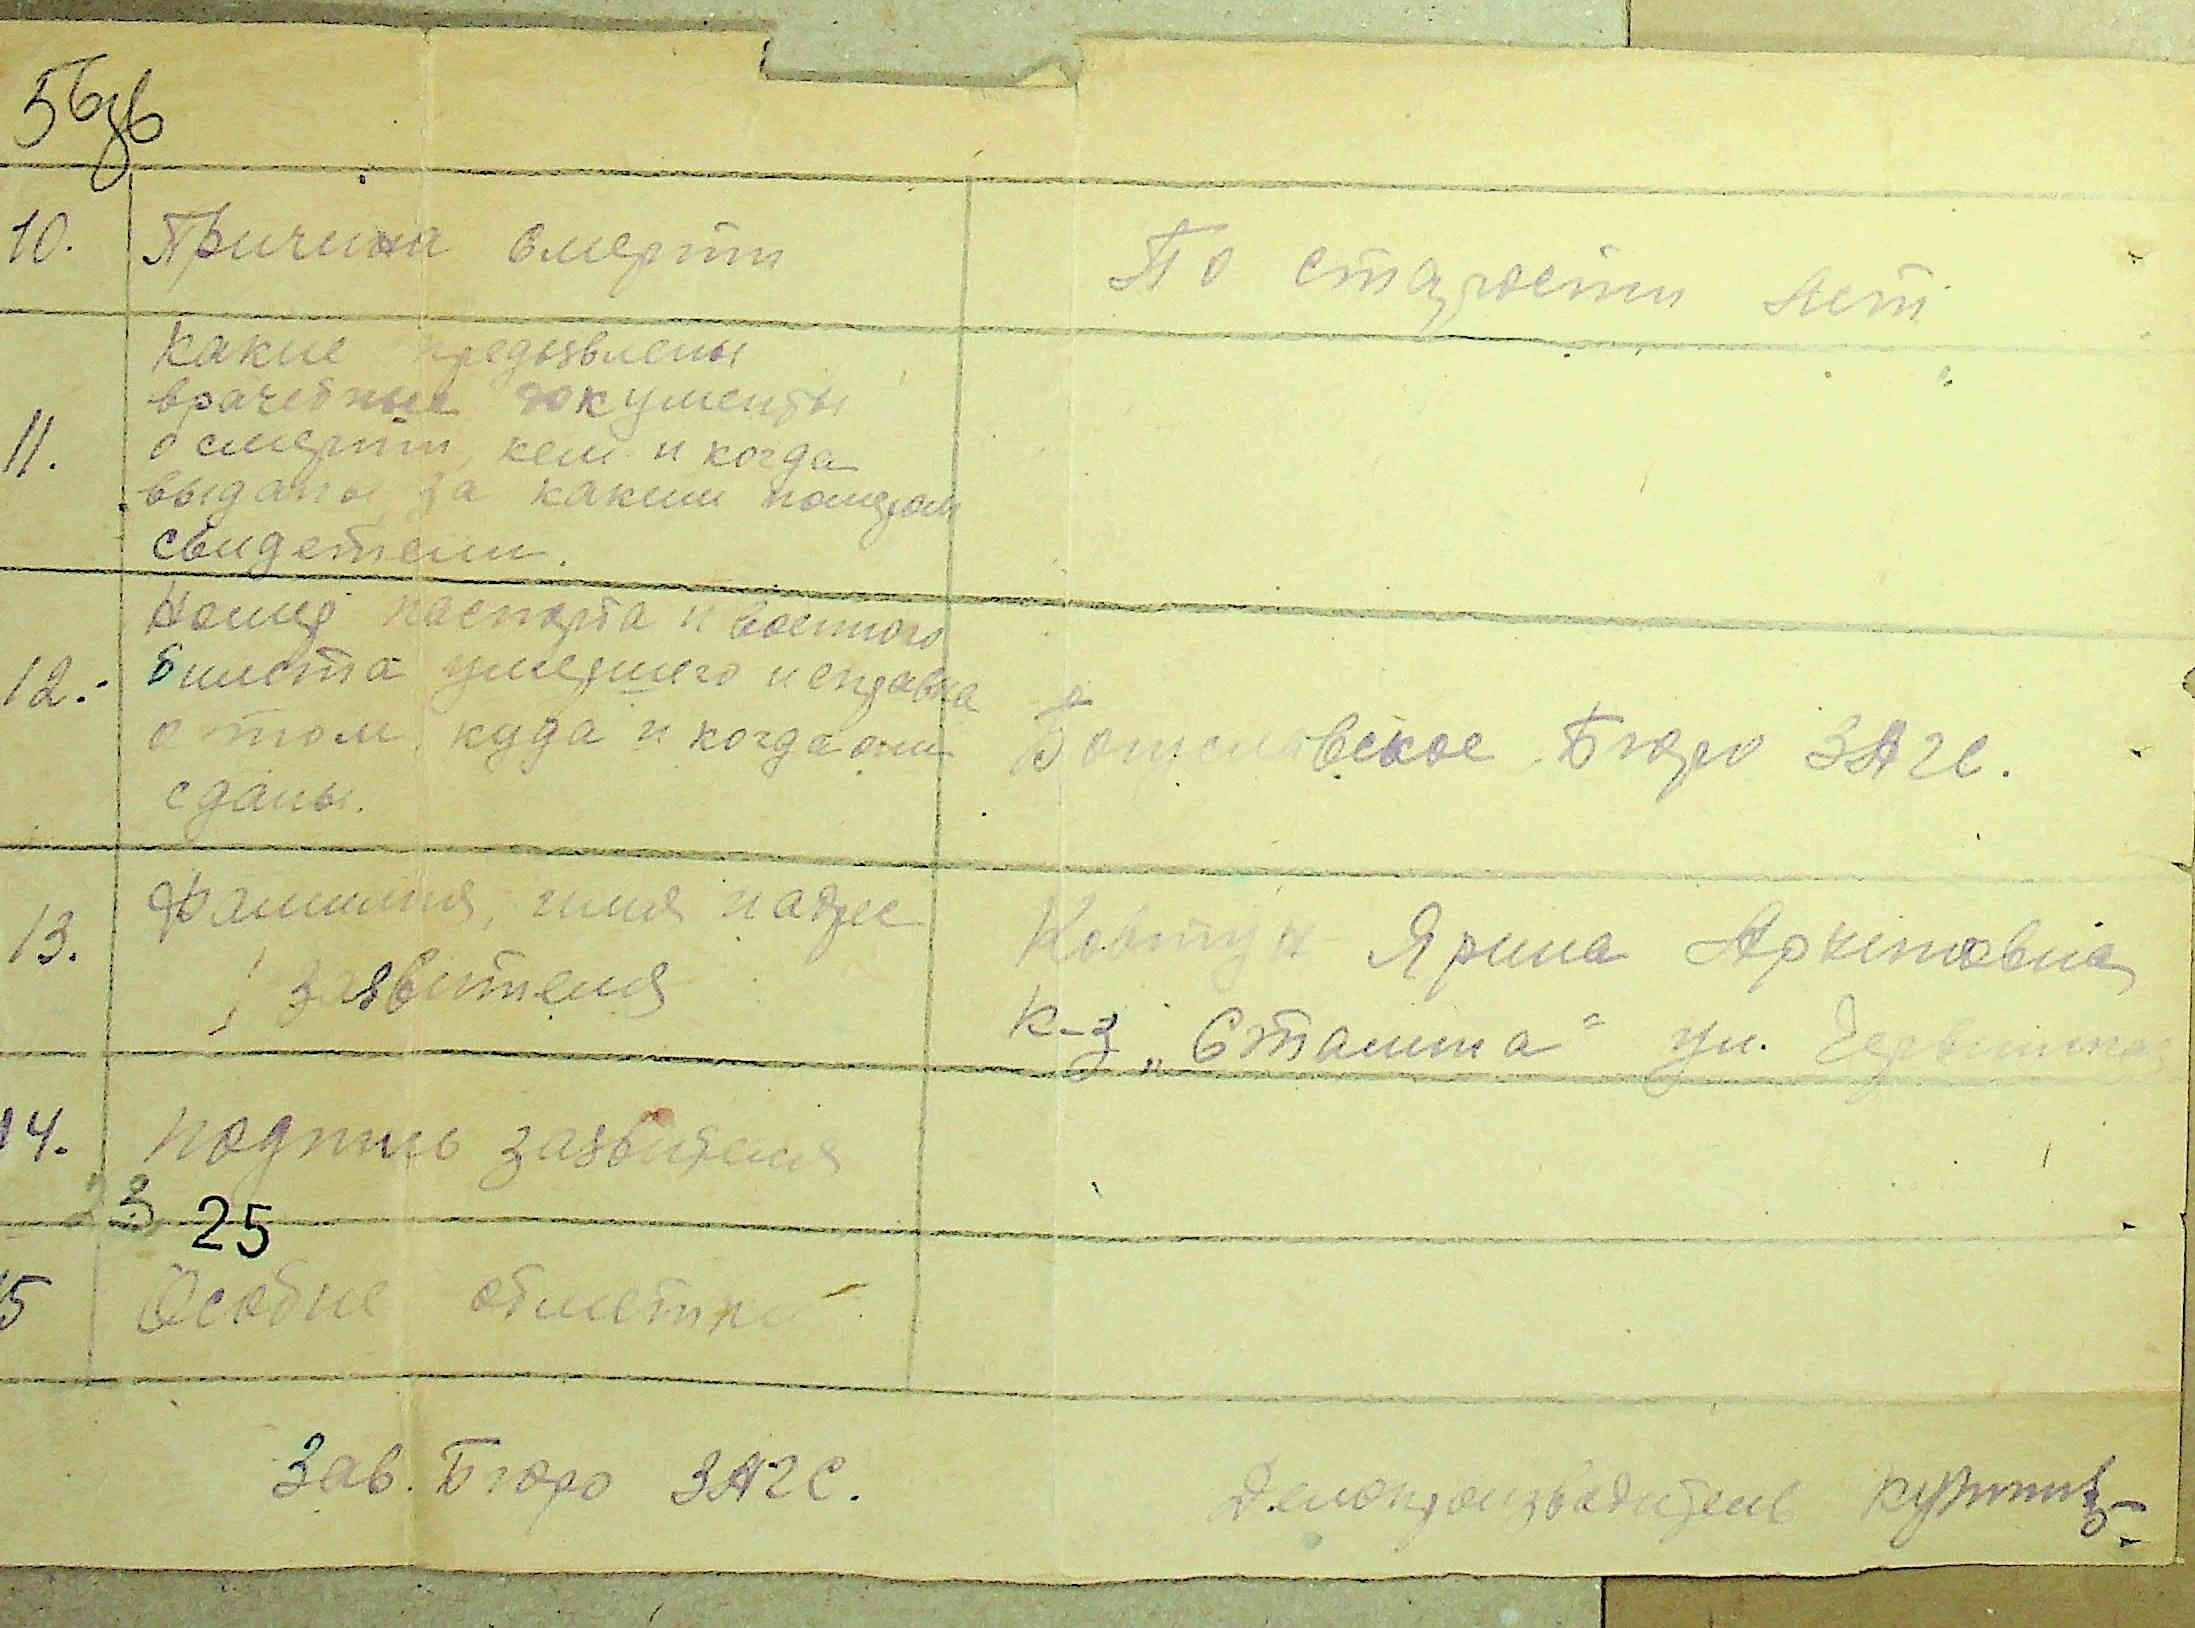 56зв
10. Причина смерти По старости лет
Какие предъявлены
врачебные документы
11. о смерти, кем и когда
выданы за каким номером
свидетели.
Номер паспорта и военного
12. билета умершего и справка
о том, куда и когда они Бюро ЗАГС.
сданы.
13. Фамилия, имя и адрес Ковтун Ярина Архиповна
заявителя к-з „Сталина" ул.
14. подпись заявителя
23 25
15 Особые отметки
Зав. Бюро ЗАГС. Делопроизводитель